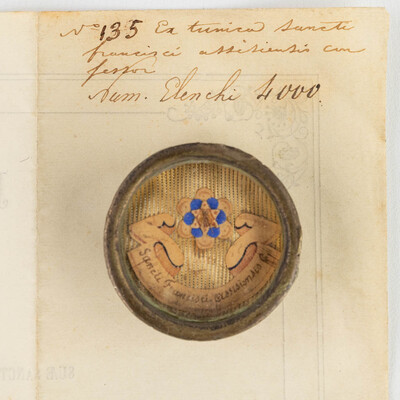 No 135 Ex tunica Sancti
francisci assisiensis con
fessor
Num. Elenchi 4000.
Sancti Francisci Assisiensis